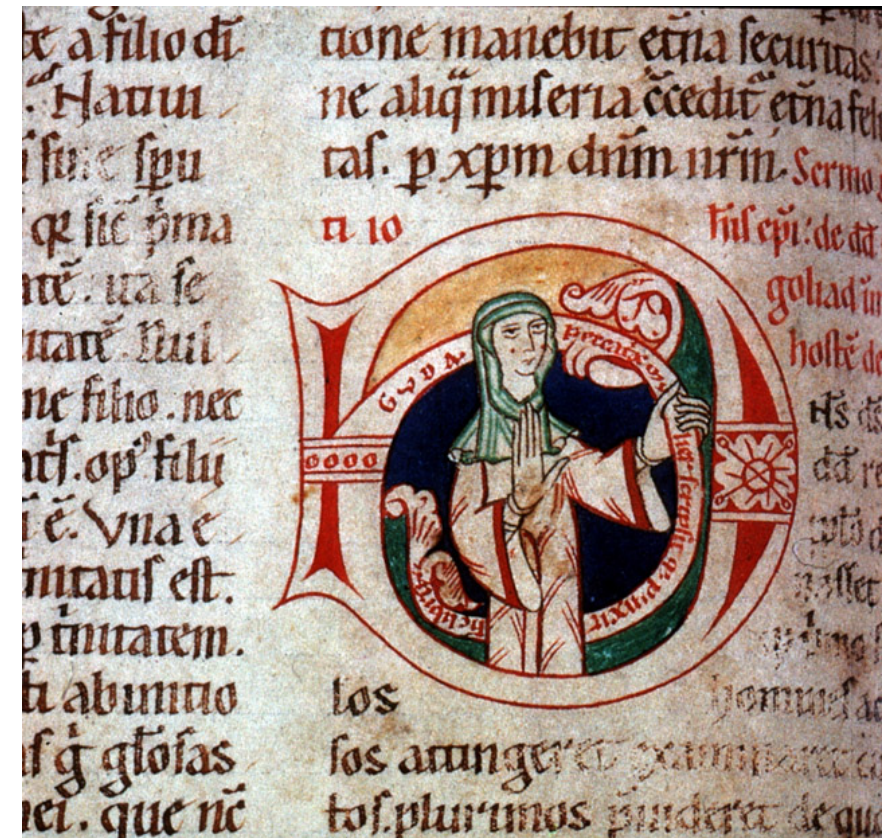 te a filio dī
. Natiui
sine spū
qr sic p̄ma
ate. ita se
uitatē. Nul
ne filio. nec
opꝰ filii
ē. Vna e
nitatis est.
ꝑ t̄nitatem.
ti ab initio
ḡ glosas
nei. que nc̄
tione manebit et̄na securitas.
ne aliq̄ miseria c̄cedit et̄na feli
tas. p xpm dn̄m nr̄m. Sermo
ti io
h̄is ep̄i: de dā
goliad in
hostē de
GVDA
peccatrix mulier scripsit & pinxit
hc librū
dd re
posset
los
homines
sos attingeret
tos. plurimos p̄uideret de